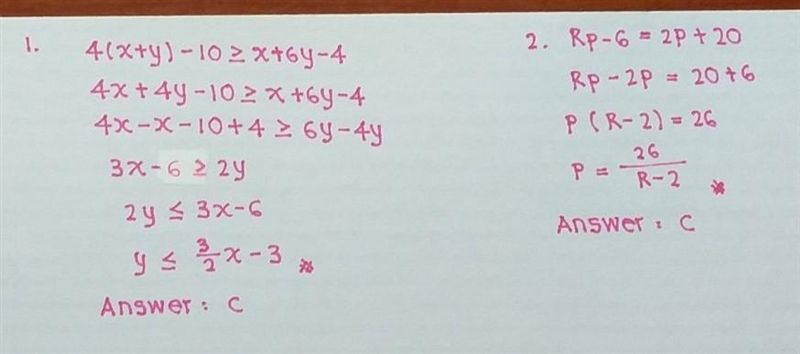 1.
4(x+y)-10 ≥ x+6y-4
4x+4y-10 ≥ x+6y-4
4x-x-10+4 ≥ 6y-4y
3x-6 ≥ 2y
2y ≤ 3x-6
y ≤ 3/2 x-3 *
Answer : C
2. Rp-6 = 2p+20
Rp-2p = 20+6
p(R-2) = 26
p = 26/(R-2) *
Answer : C